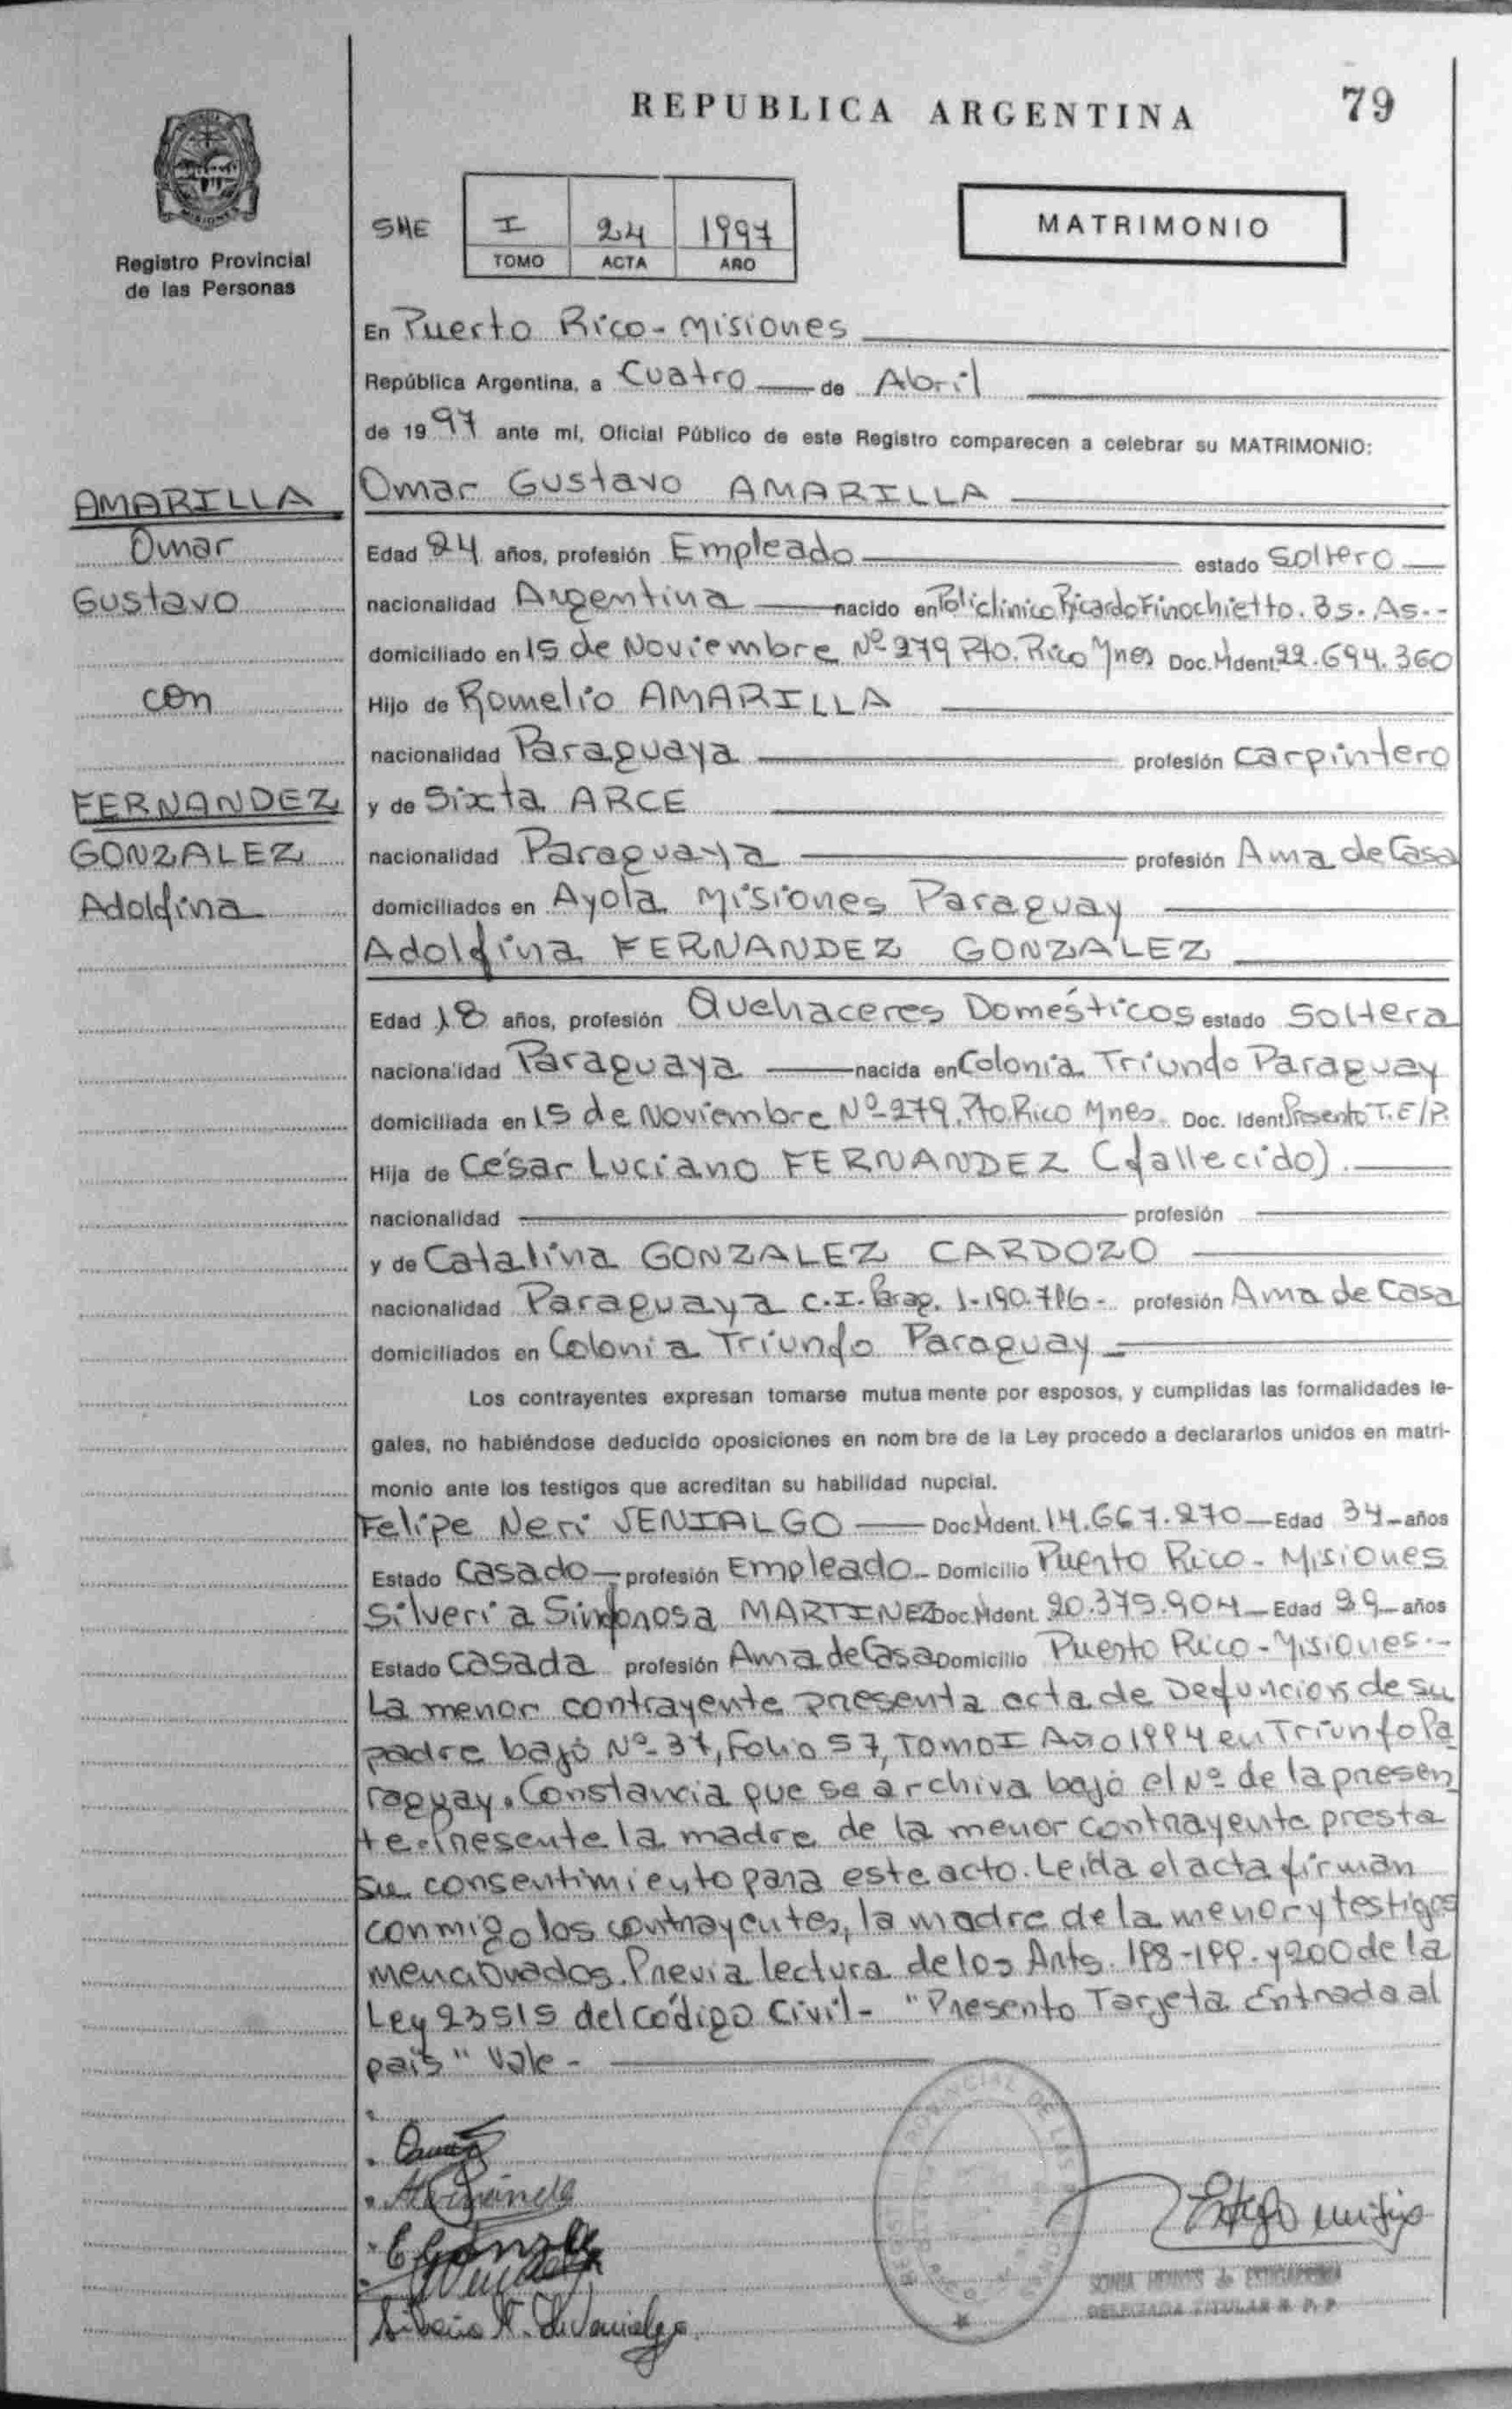 REPUBLICA ARGENTINA
79
Registro Provincial
de las Personas
SHE
I 24 1997
TOMO ACTA AÑO
MATRIMONIO
En Puerto Rico - Misiones
República Argentina, a Cuatro de Abril
de 1997 ante mí, Oficial Público de este Registro comparecen a celebrar su MATRIMONIO:
Omar Gustavo AMARILLA
AMARILLA
Omar
Gustavo
con
FERNANDEZ
GONZALEZ
Adolfina
Edad 24 años, profesión Empleado estado Soltero
nacionalidad Argentina nacido en Policlinico Ricardo Finochietto. Bs. As.-
domiciliado en 15 de Noviembre Nº 279 Pto. Rico Mnes Doc. Ident. 22.694.360
Hijo de Romelio AMARILLA
nacionalidad Paraguaya profesión Carpintero
y de Sixta ARCE
nacionalidad Paraguaya profesión Ama de Casa
domiciliados en Ayola Misiones Paraguay
Adolfina FERNANDEZ GONZALEZ
Edad 18 años, profesión Quehaceres Domésticos estado Soltera
nacionalidad Paraguaya nacida en Colonia Triunfo Paraguay
domiciliada en 15 de Noviembre Nº 279. Pto. Rico Mnes. Doc. Ident. Presento T.E/P.
Hija de César Luciano FERNANDEZ (fallecido).
nacionalidad profesión
y de Catalina GONZALEZ CARDOZO
nacionalidad Paraguaya C.I. Parag. 1-190.716- profesión Ama de Casa
domiciliados en Colonia Triunfo Paraguay
Los contrayentes expresan tomarse mutua mente por esposos, y cumplidas las formalidades le-
gales, no habiéndose deducido oposiciones en nom bre de la Ley procedo a declararlos unidos en matri-
monio ante los testigos que acreditan su habilidad nupcial.
Felipe Neri VENIALGO Doc. Ident. 14.667.270 Edad 34 años
Estado Casado profesión Empleado Domicilio Puerto Rico - Misiones
Silveria MARTINEZ Doc. Ident. 20.375.904 Edad años
Estado Casada profesión Ama de Casa Domicilio Puerto Rico - Misiones.-
La menor contrayente presenta acta de Defuncion de su
padre bajo Nº 37, Folio 57, Tomo I Año 1994 en Triunfo Pa
raguay. Constancia que se archiva bajo el Nº de la presen
te. Presente la madre de la menor contrayente presta
su consentimiento para este acto. Leída el acta firman
conmigo los contrayentes, la madre de la menor y testigos
mencionados. Previa lectura de los Arts. 198-199. y 200 de la
Ley 23515 del Código Civil - "Presento Tarjeta Entrada al
país" Vale -
DELEGADA TITULAR R. P. P.